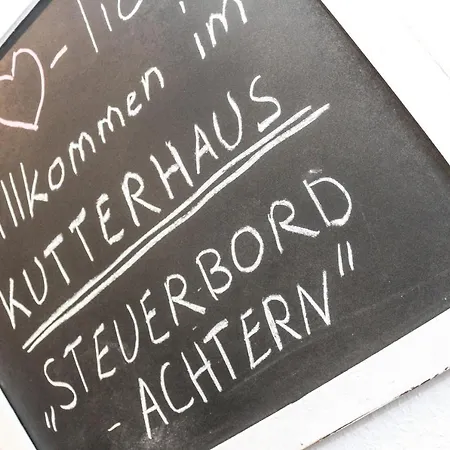 ♡-lic
illkommen im
KUTTERHAUS
„STEUERBORD
-ACHTERN"